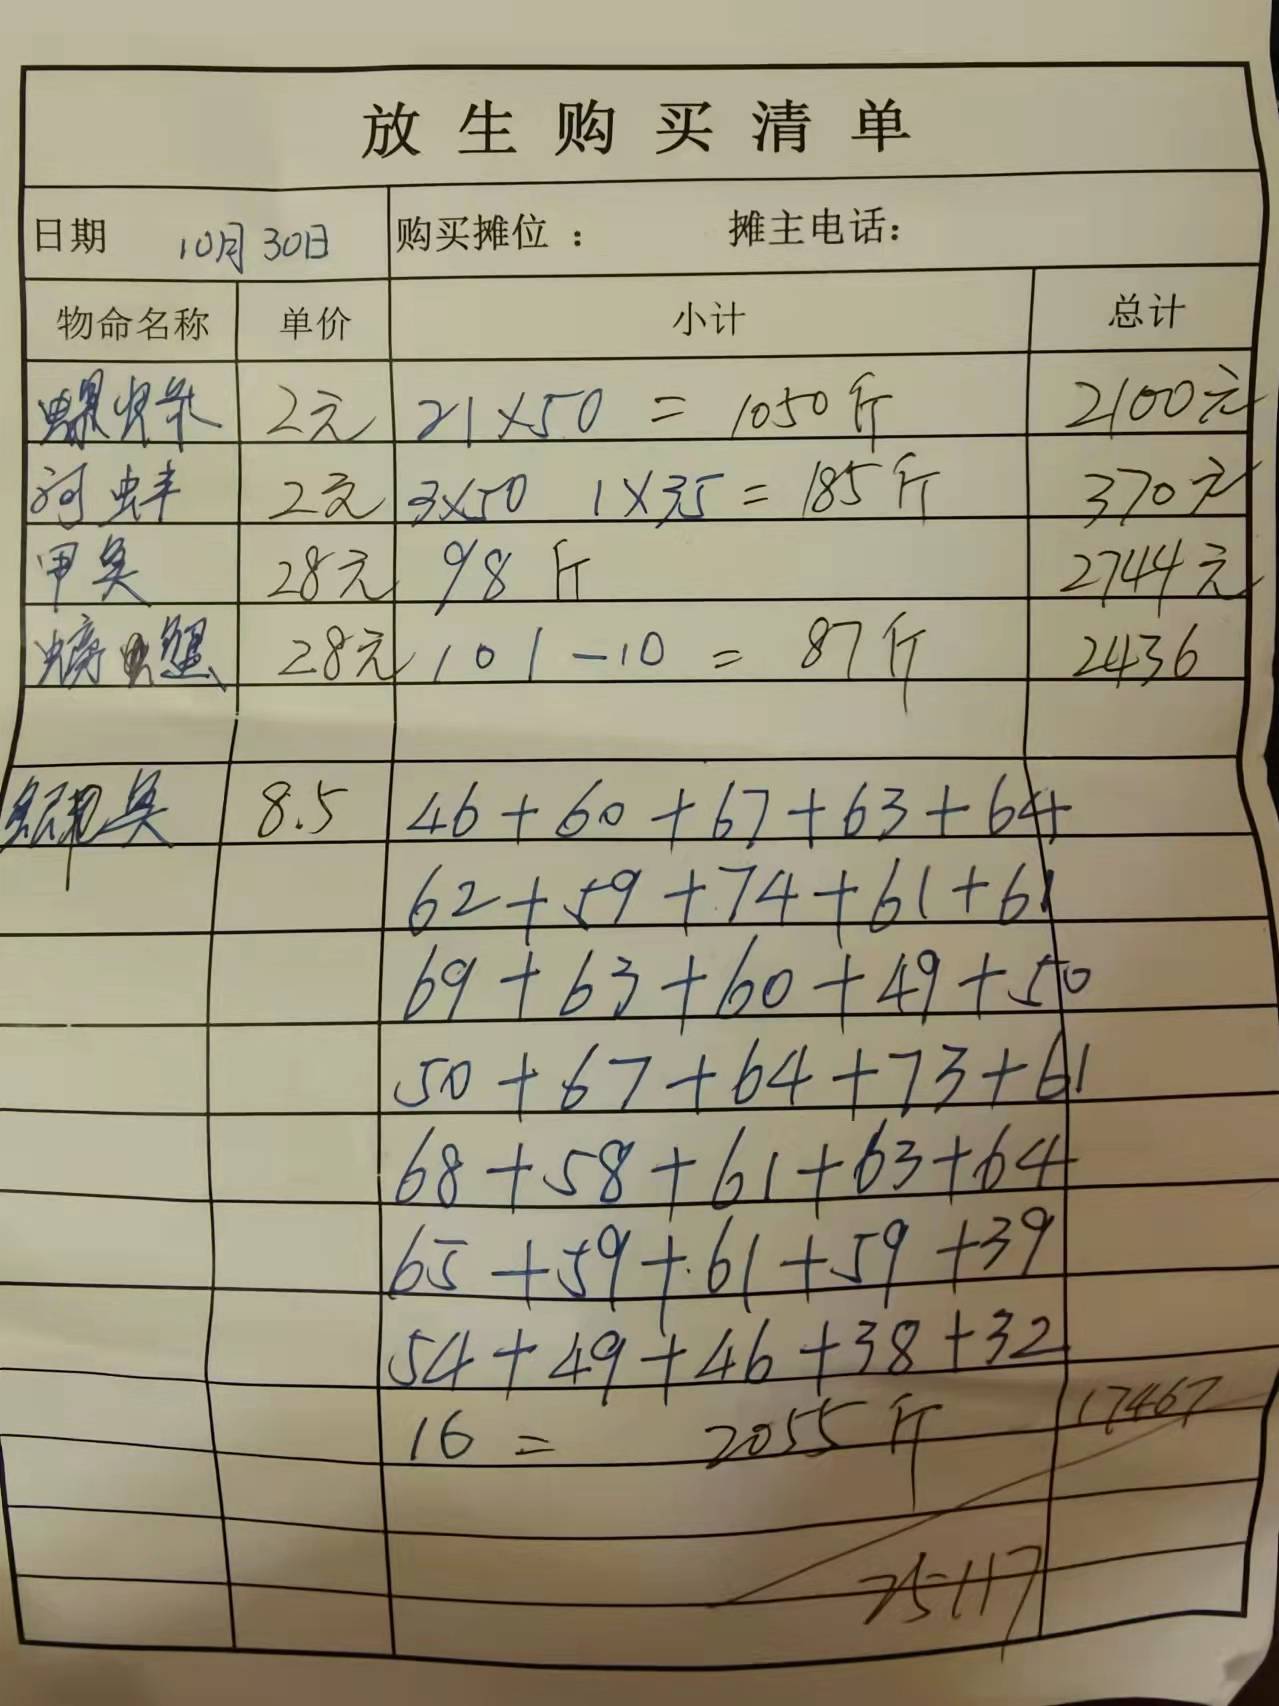 放生购买清单
日期 10月30日 购买摊位： 摊主电话：
物命名称 单价 小计 总计
螺蛳 2元 21×50 = 1050斤 2100元
河蚌 2元 3×50 1×35 = 185斤 370元
甲鱼 28元 98斤 2744元
螃蟹 28元 101-10 = 87斤 2436
鱼 8.5 46+60+67+63+64
62+59+74+61+61
69+63+60+49+50
50+67+64+73+61
68+58+61+63+64
65+59+61+59+39
54+49+46+38+32
16 = 2055斤 17467
25117